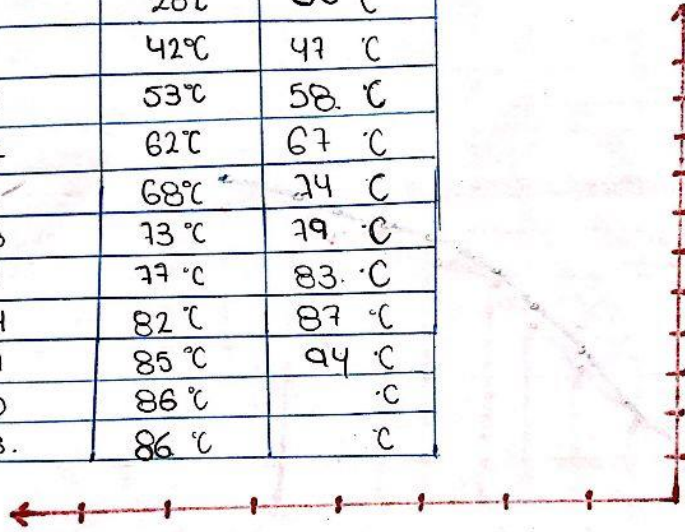 42°C 47 °C
53°C 58. °C
62°C 67 °C
68°C 74 °C
73 °C 79 °C
77 °C 83. °C
82 °C 87 °C
85 °C 94 °C
86 °C °C
86 °C °C